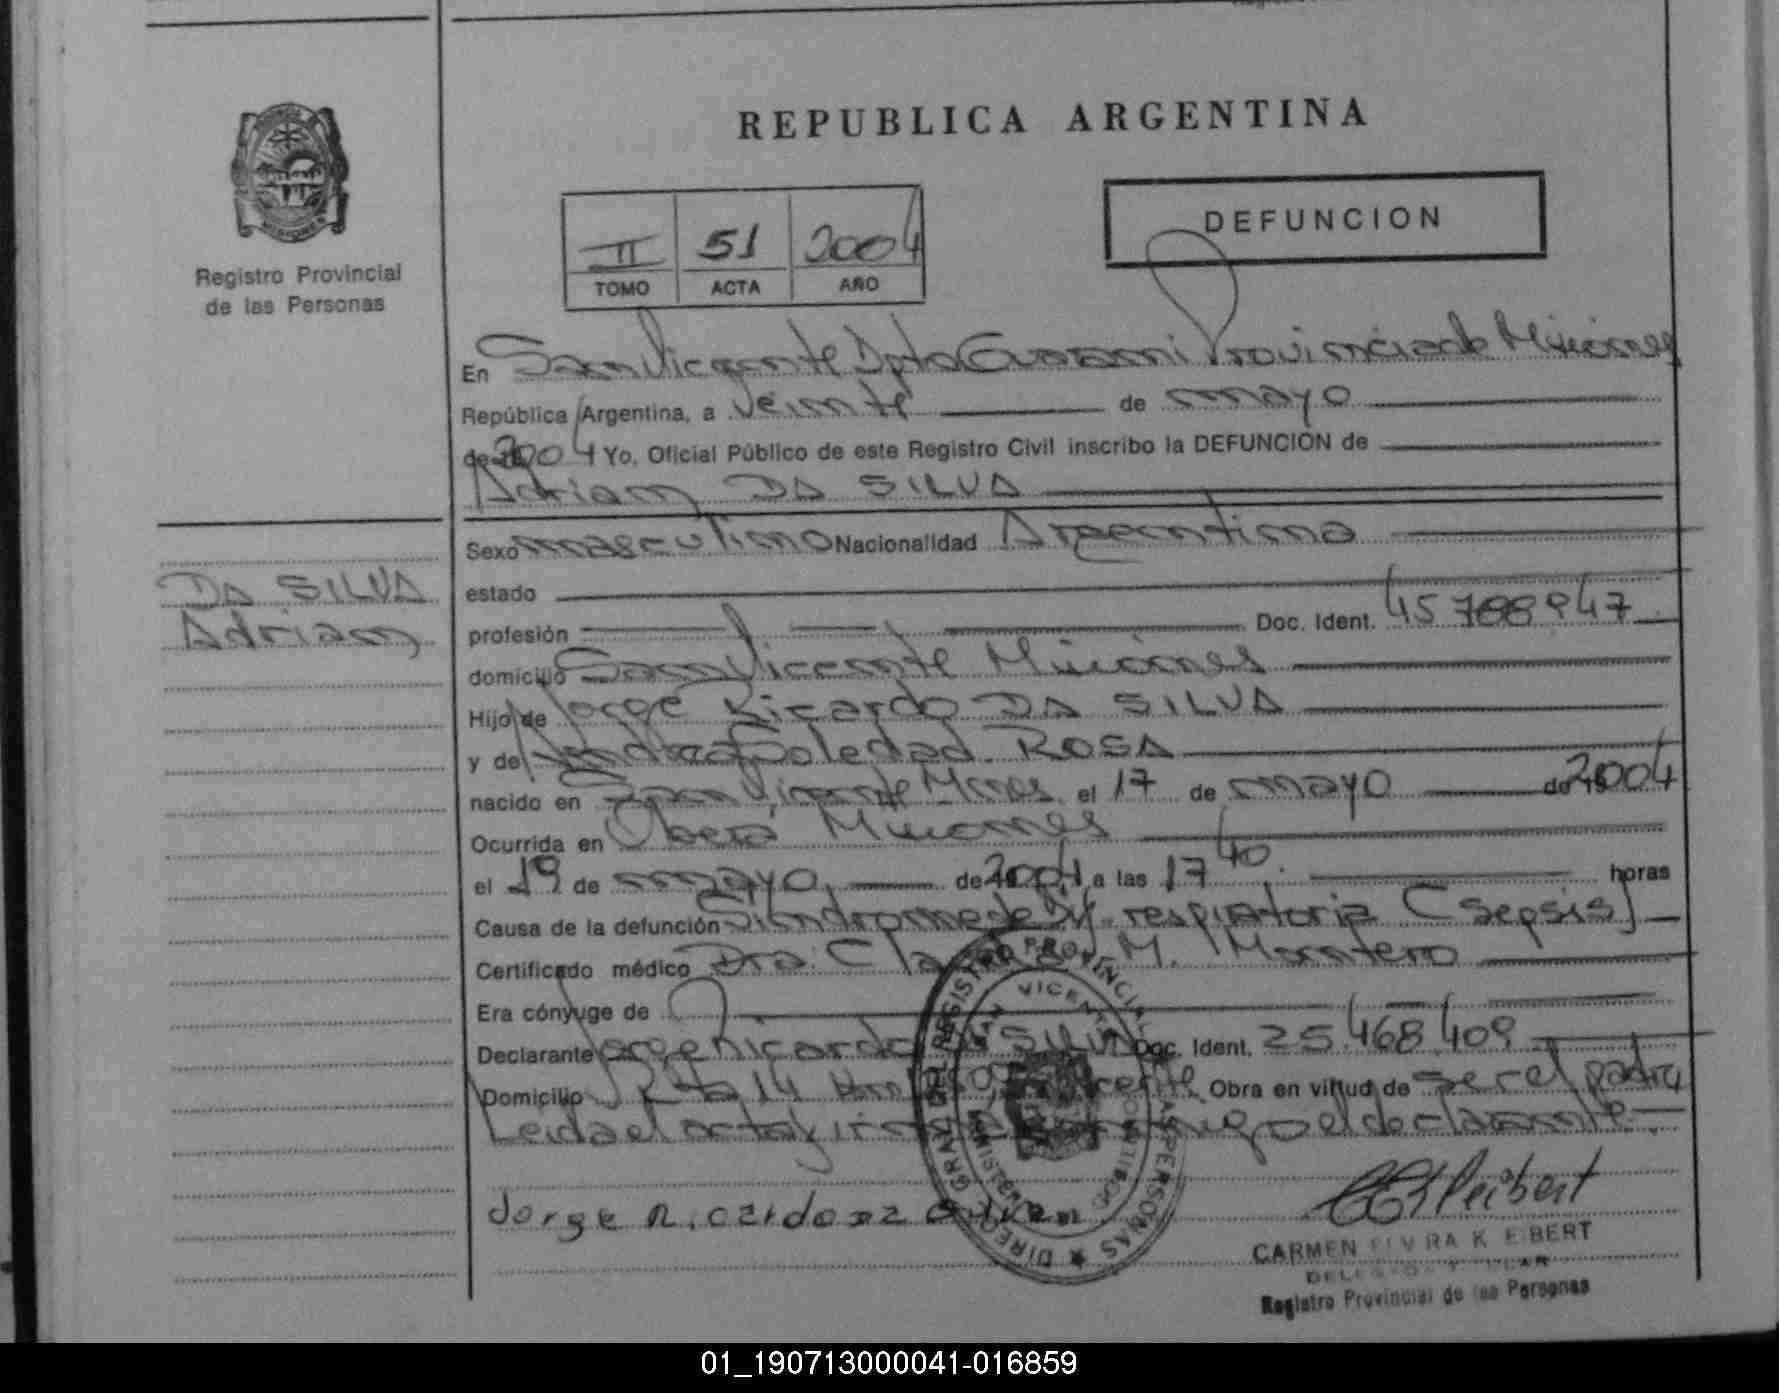 REPUBLICA ARGENTINA
DEFUNCION
II 51 2004
TOMO ACTA AÑO
Registro Provincial
de las Personas
En San Vicente Dpto Guarani Provincia de Misiones
República Argentina, a Veinte de mayo
de 2004 Yo, Oficial Público de este Registro Civil inscribo la DEFUNCION de
Adrian DA SILVA
DA SILVA
Adrian
Sexo masculino Nacionalidad Argentina
estado
profesión Doc. Ident. 45 788 947
domicilio San Vicente Misiones
Hijo de Jorge Ricardo DA SILVA
y de Andrea Soledad ROSA
nacido en San Vicente Mnes el 17 de mayo de 2004
Ocurrida en Oberá Misiones
el 19 de mayo de 2004 a las 17 40 horas
Causa de la defunción Sindrome de Dif. respiratoria (sepsis)
Certificado médico Dra. M. Montero
Era cónyuge de
Declarante Jorge Ricardo DA SILVA Doc. Ident. 25.468.409
Domicilio Rta 14 Obra en virtud de ser el padre
Leida el acta firma conmigo el declarante.
Jorge Ricardo
CARMEN ELVIRA KLEIBERT
DELEGADA TITULAR
Registro Provincial de las Personas
DIRECC. GRAL. DEL REGISTRO PROVINCIAL PERSONAS
SAN VICENTE
MISIONES
01_190713000041-016859